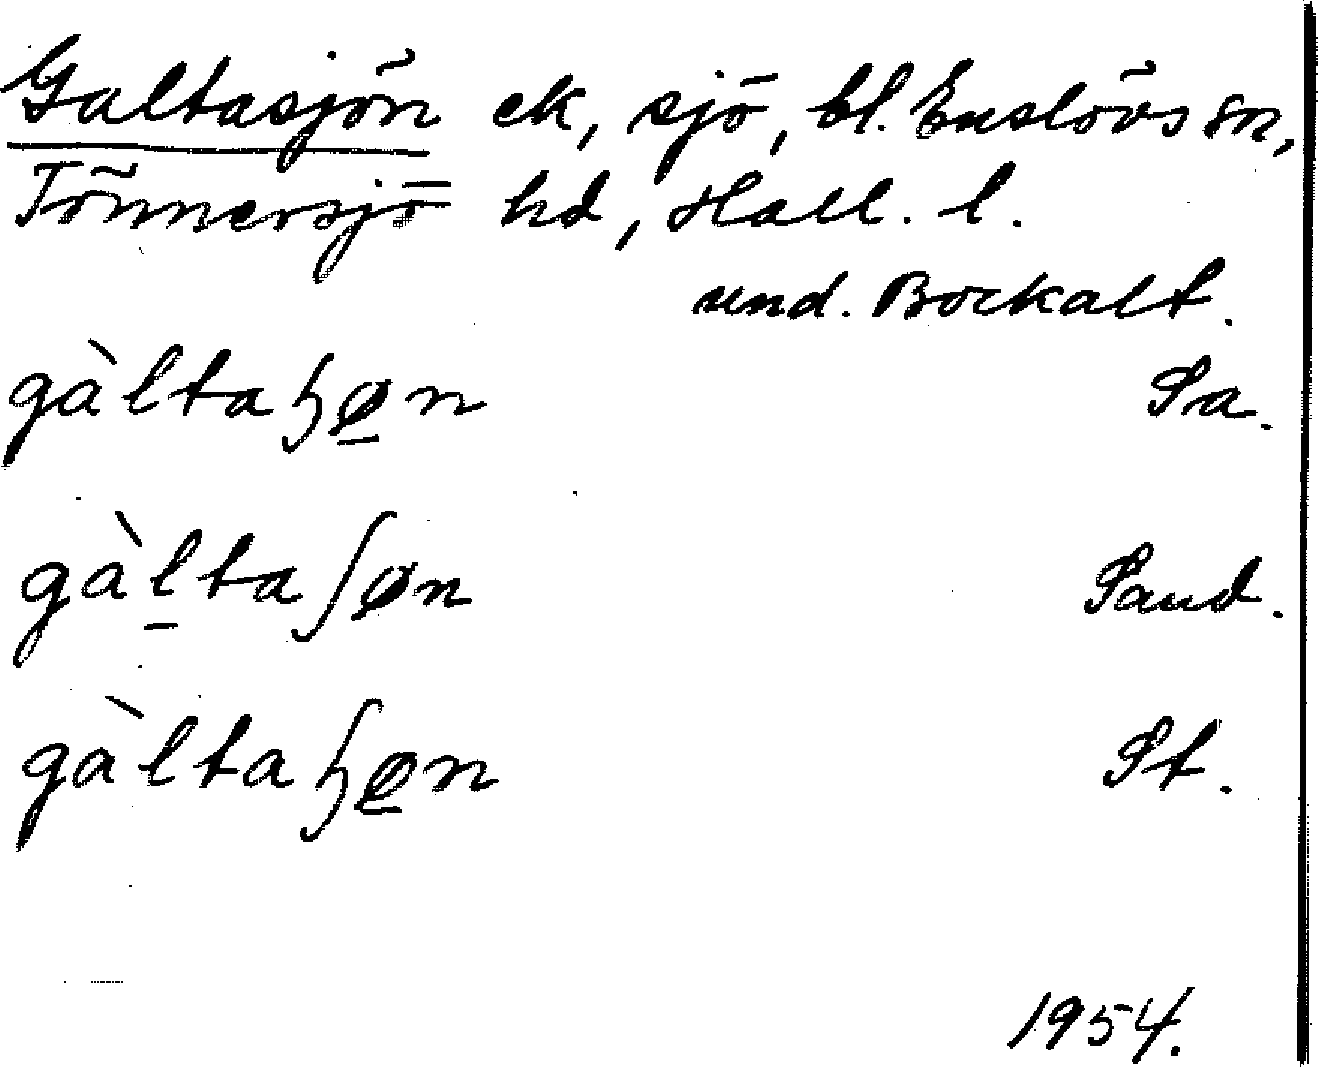 Galtasjön ek, sjö, bl. Enslövs sn,
Tönnersjö hd, Hall. l.
und. Bockalt.
gàltaɧø̠n Sa.
gàl̠taʃøn Sand.
gàltaɧø̠n St.
1954.